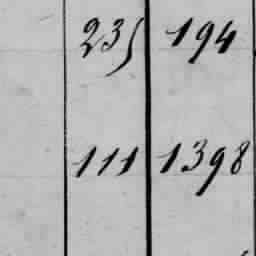 235 194
111 1398